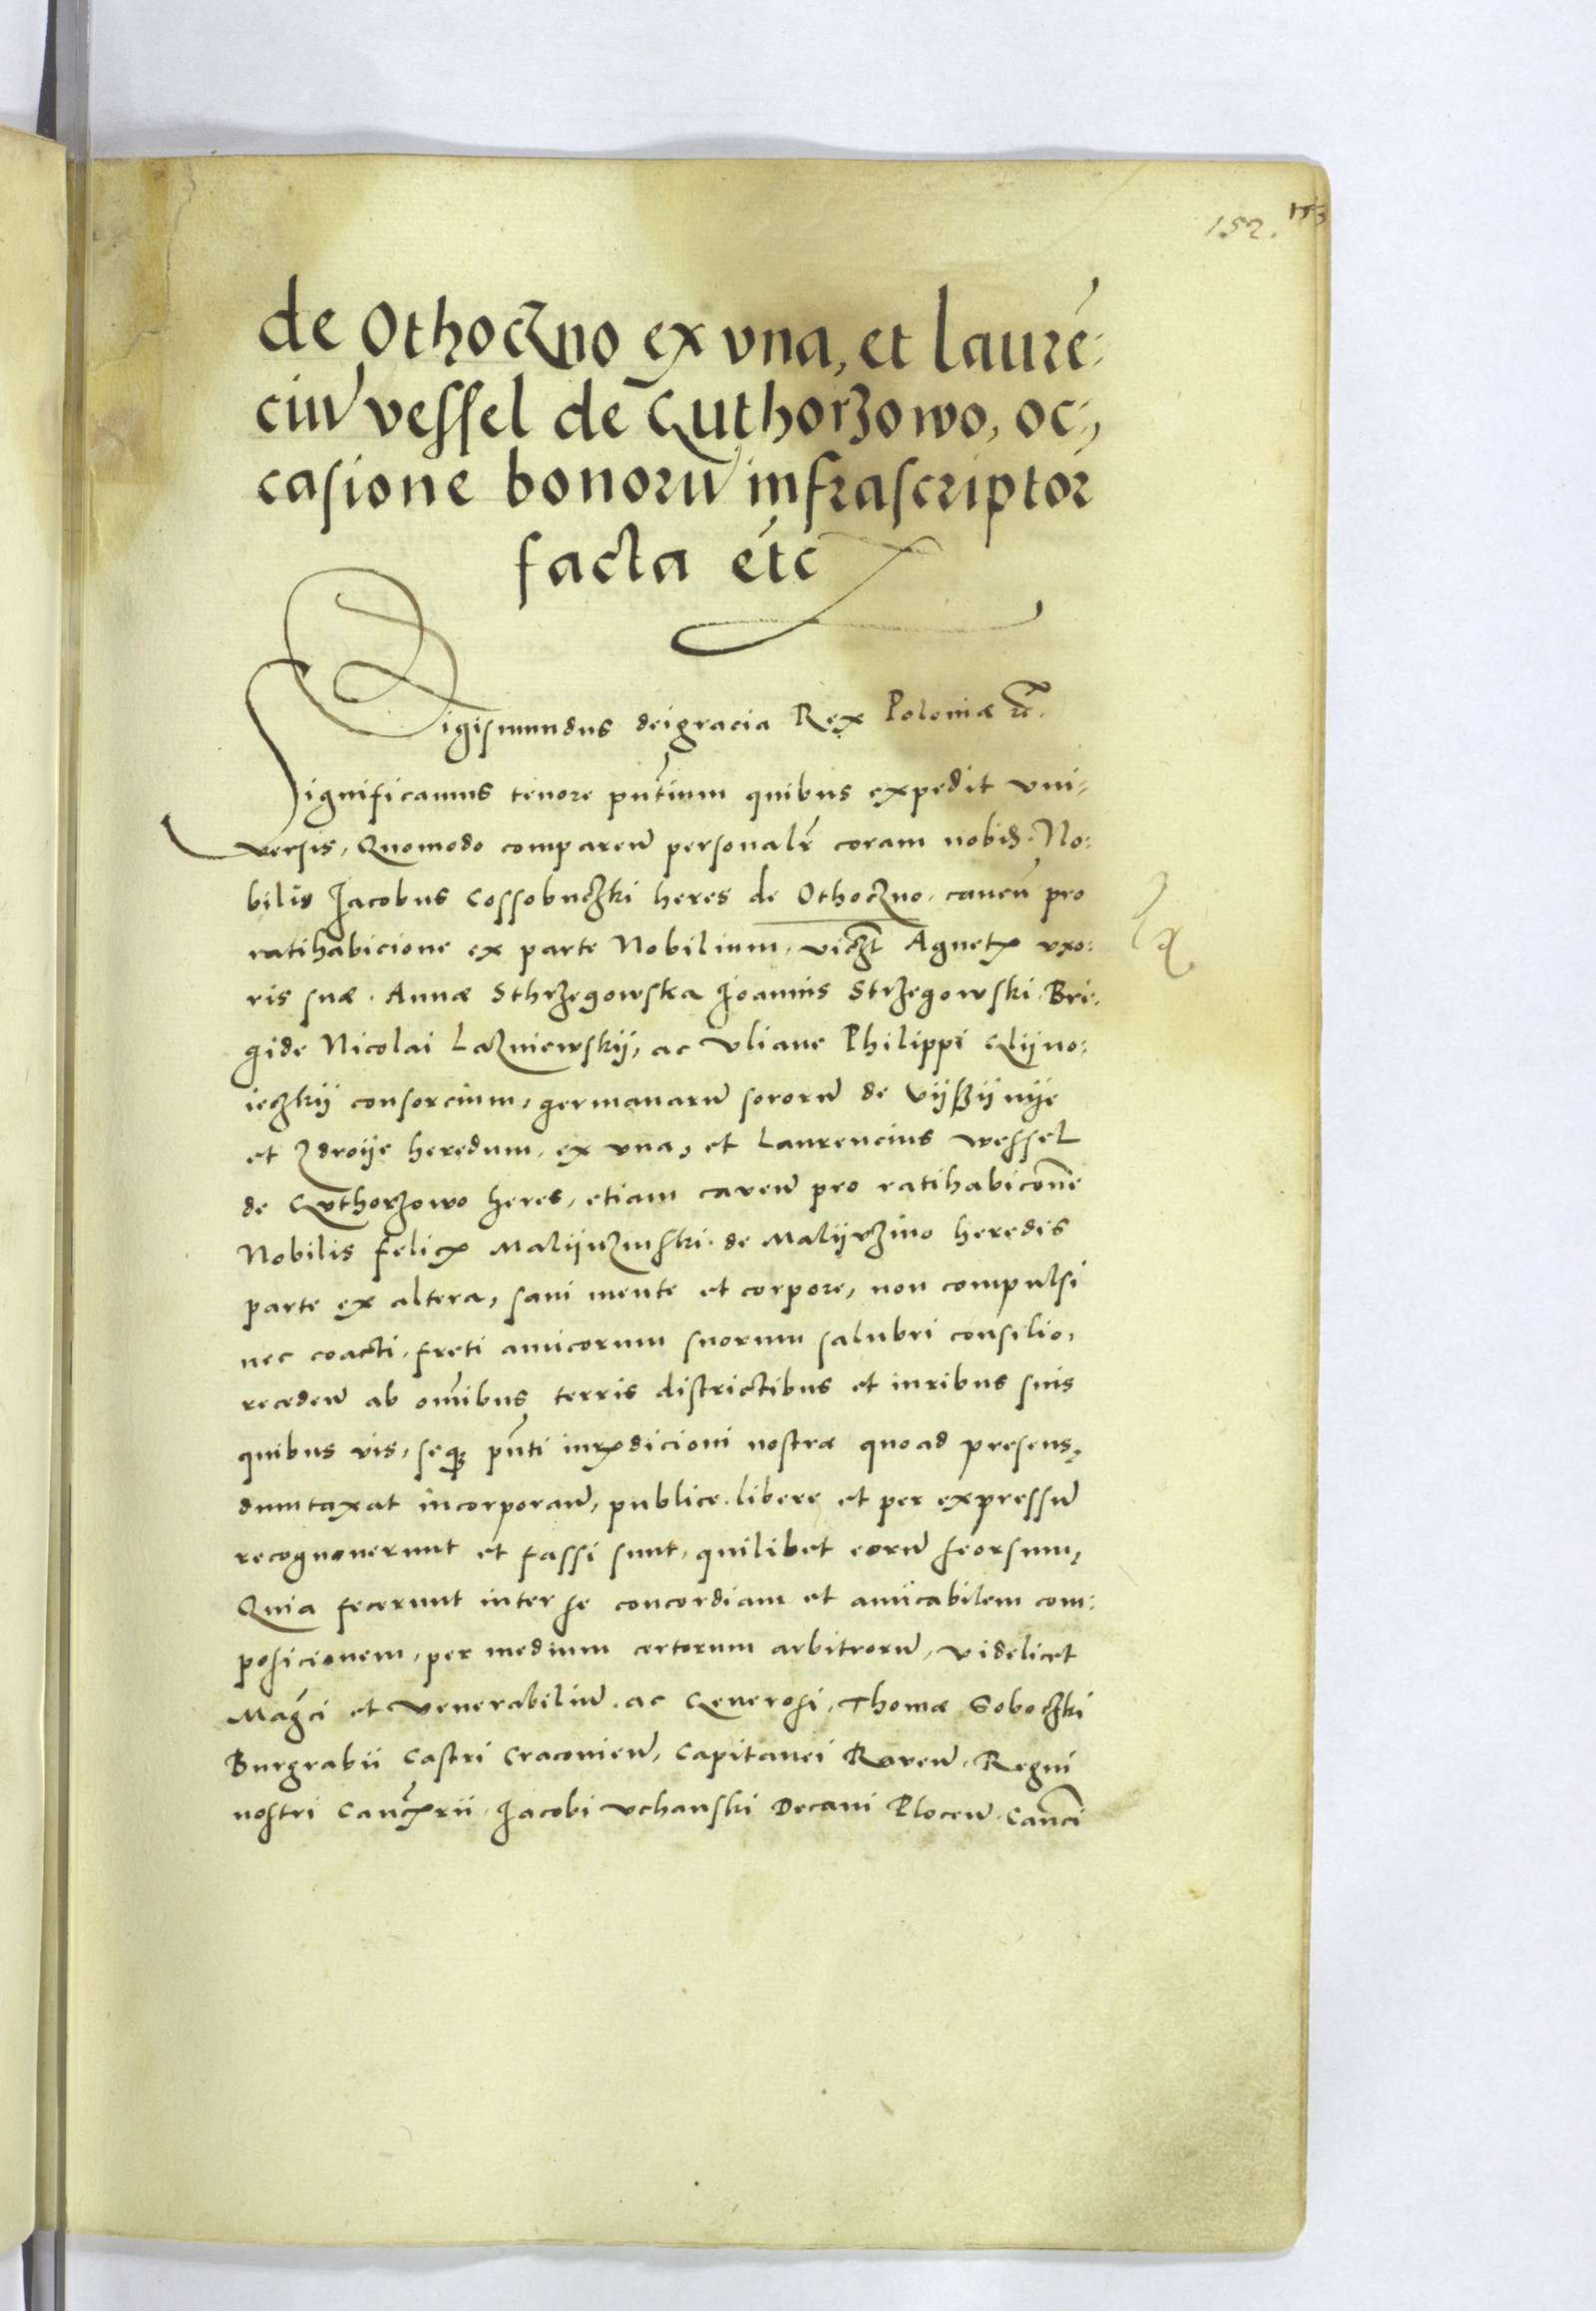 152. 153
de Othoczno ex vna, et laurē:
ciū vessel de Guthorzowo, oc,
casione bonorū infrascriptor
facta etc
Sigismundus deigracia Rex Poloniæ etc.
Significamus tenore pn̄tium quibus expedit vni,
versis, Quomodo compareñ personalr̄ coram nobis. No:
bilis Jacobus Cossobuczki heres de Othoczno. caueñ pro
ratihabicione ex parte Nobilium, viczt Agnetis vxo:
ris suæ. Annæ Sthrzegowska Joannis Strzegowski. Bri,
gide Nicolai Lazniewskij, ac Vliane Philippi Glijno:
ieczkij consorcium, germanarū sororū de Vijszijnije
et Zdroije heredum, ex vna, et Laurencius wessel
de Guthorzowo heres, etiam caueñ pro ratihabicōne
Nobilis felicis Malijuzinski. de Malijuzino heredis
parte ex altera, sani mente et corpore, non compulsi
nec coacti. freti amicorum suorum salubri consilio,
recedeñ ab om̄ibus terris districtibus et iuribus suis
quibus vis, seqz pn̄ti iurisdicioni nostræ quoad presens,
dumtaxat incorporañ, publice. libere et per expressū
recognouerunt et fassi sunt, quilibet eorū seorsum,
Quia fecerunt inter se concordiam et amicabilem com:
posicionem, per medium certorum arbitrorū, videlicet
Magci et venerabiliū. ac Generosi, Thomæ Soboczki
Burgrabii Castri Cracovieñ, Capitanei Raveñ. Regni
nostri Cancrii. Jacobi Vchanski Decani Ploceñ. Canci